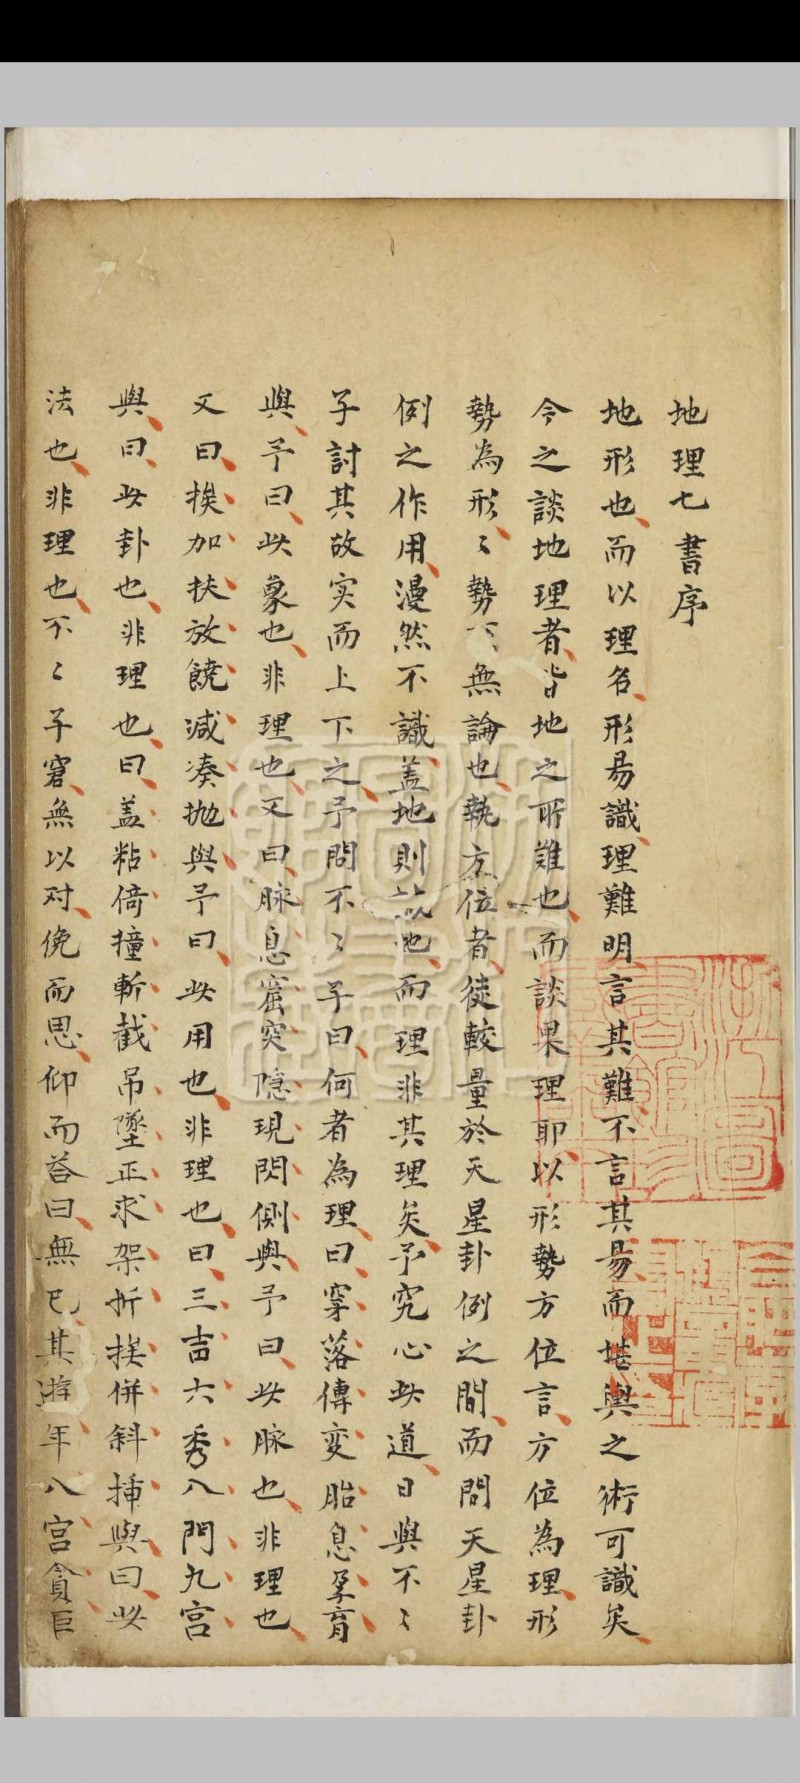 地理七書序
地形也而以理名形易識理難明言其難不言其易而堪輿之術可識矣
今之談地理者皆地之所難也而談果理耶以形勢方位言方位為理形
勢為形〻勢下無論也執方位者徒較量於天星卦例之間而問天星卦
例之作用漫然不識盖地則地而理非其理矣予究心此道日與不〻
子討其故实而上下之予問不〻子曰何者為理曰穿落傳変胎息孕育
與予曰此象也非理也又曰脉息窟突隐現閃側與予曰此脉也非理也
又曰挨加扶放饒减凑抛與予曰此用也非理也曰三吉六秀八門九宫
與曰此卦也非理也曰盖粘倚撞斬截吊墜正求架折挨併斜揷與曰此
法也非理也不〻子窘無以对俛而思仰而荅曰無已其遊年八宫貪巨